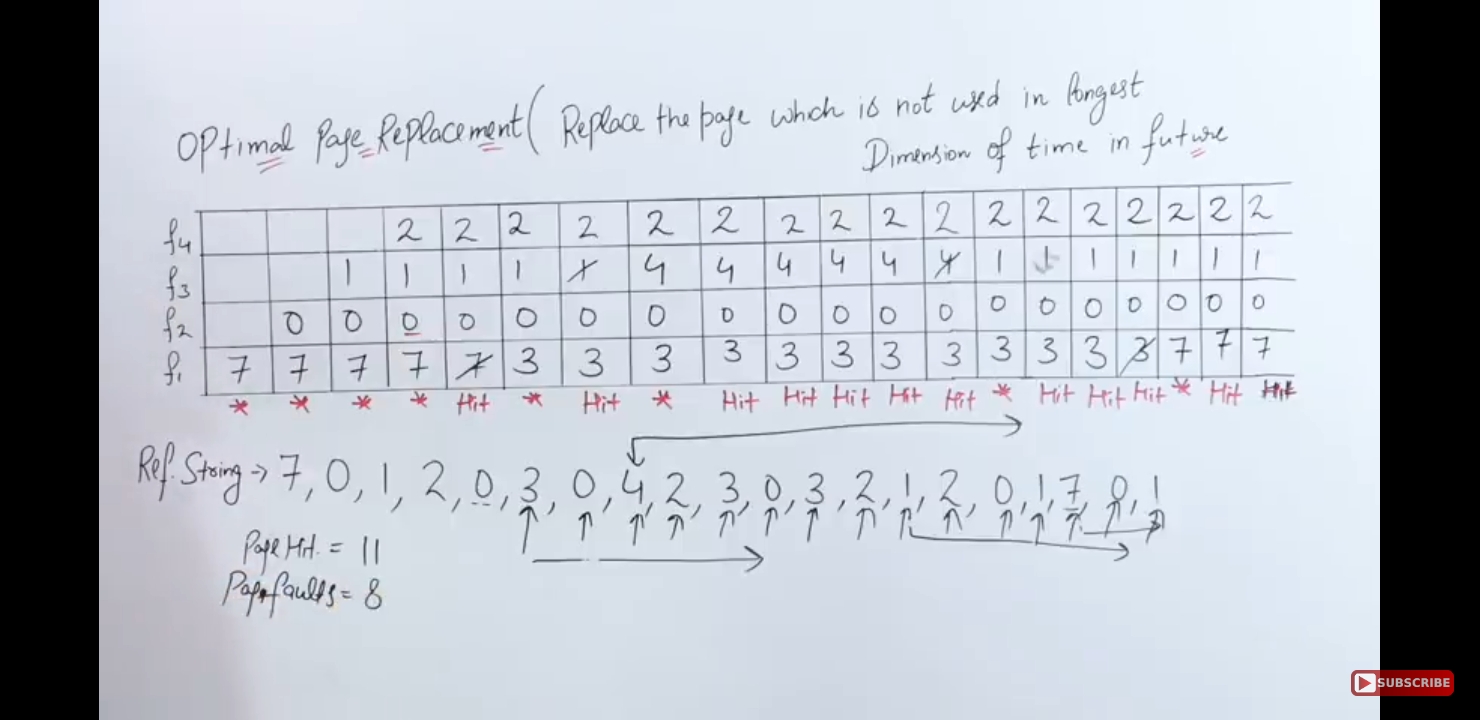 OPtimal Page Replacement ( Replace the page which is not used in longest
Dimension of time in future
f4 2 2 2 2 2 2 2 2 2 2 2 2 2 2 2 2 2
f3 1 1 1 1 1 4 4 4 4 4 4 1 1 1 1 1 1 1
f2 0 0 0 0 0 0 0 0 0 0 0 0 0 0 0 0 0 0 0
f1 7 7 7 7 7 3 3 3 3 3 3 3 3 3 3 3 3 7 7 7
* * * * Hit * Hit * Hit Hit Hit Hit Hit * Hit Hit Hit * Hit Hit
Ref. String → 7, 0, 1, 2, 0, 3, 0, 4, 2, 3, 0, 3, 2, 1, 2, 0, 1, 7, 0, 1
Page Hit. = 11
Page faults = 8
SUBSCRIBE